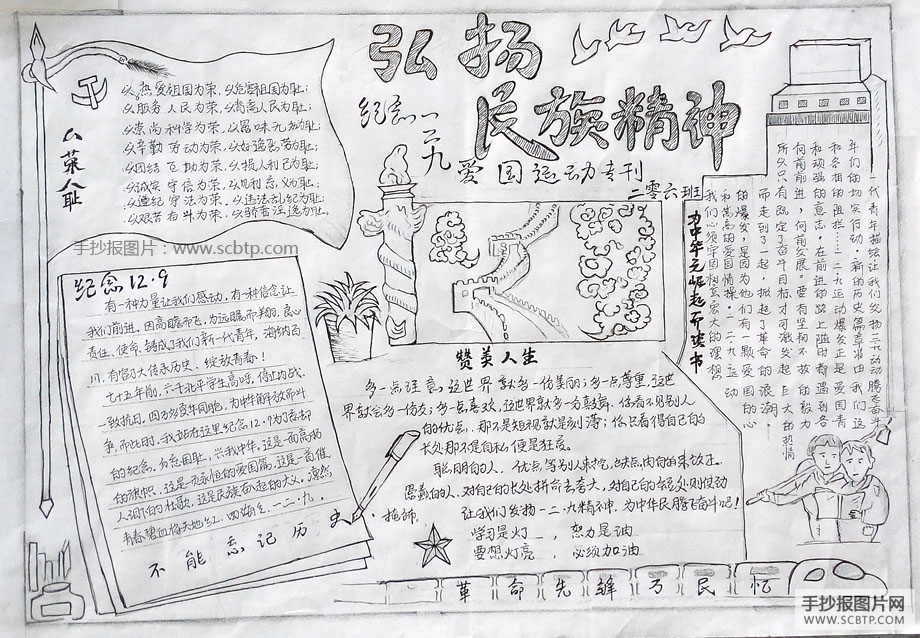 弘扬
民族精神
纪念一二九
爱国运动专刊
二零六班
八荣八耻
以热爱祖国为荣,以危害祖国为耻;
以服务人民为荣,以背离人民为耻;
以崇尚科学为荣,以愚昧无知为耻;
以辛勤劳动为荣,以好逸恶劳为耻;
以团结互助为荣,以损人利己为耻;
以诚实守信为荣,以见利忘义为耻;
以遵纪守法为荣,以违法乱纪为耻;
以艰苦奋斗为荣,以骄奢淫逸为耻。
手抄报图片:www.scbtp.com
纪念12.9
有一种力量让我们感动,有一种信念让
我们前进,因高瞻而飞,为远瞩而翔,良心
责任、使命,铸成了我们新一代青年,海纳百
川,有容乃大传承历史,绽放青春!
七十五年前,六千北平学生高呼,停止内战,
一致抗日,因为多灾牛同胞,为中华解放而斗
争,而此时,我站在这里纪念12.9为了忘却
的纪念,勿忘国耻,兴我中华,这是一面高扬
的旗帜,这是一页永恒的爱国篇,这是一首催
人泪的壮歌,这是民族奋起的大义,凛然
青春碧血将天地红,四海
一二·九,
不能忘记历史
赞美人生
多一点注意,这世界就多一份美丽;多一点尊重,这世
界就会多一份友;多一点喜欢,这世界就多一方鼓舞,你看不见别人
的优点,那不是短视就是刻薄;你只看得自己的
长处那不是自私便是狂傲。
聪明的人,优点等别人来挖,缺点,由自己来改正。
愚蠢的人,对自己的长处拼命去夸大,对自己的
让我们发扬一二·九精神,为中华民腾飞奋斗吧!
学习是灯,努力是油
要想灯亮,必须加油
为中华之崛起而读书
一代青年描绘让我们发扬一二九运动腾飞奋斗
斗们的切实行动,新的历史篇章须由我们这
和各组的阻拦……一二九运动爆发正是爱国青
和顽强的意志,在前进的路上随时都遇到各
向前前进,向前发展,要有坚和不放的毅力
所以只有既定了奋斗目标才可激发起巨大的热情
而走到了一起,掀起了革命的浪潮。
的爆发,是因为他们有一颗爱国的心
和高尚的爱国情操,一二九运动
我们必须牢固树立宏大的理想
革命先
民
忆
手抄报图片网
WWW.SCBTP.COM